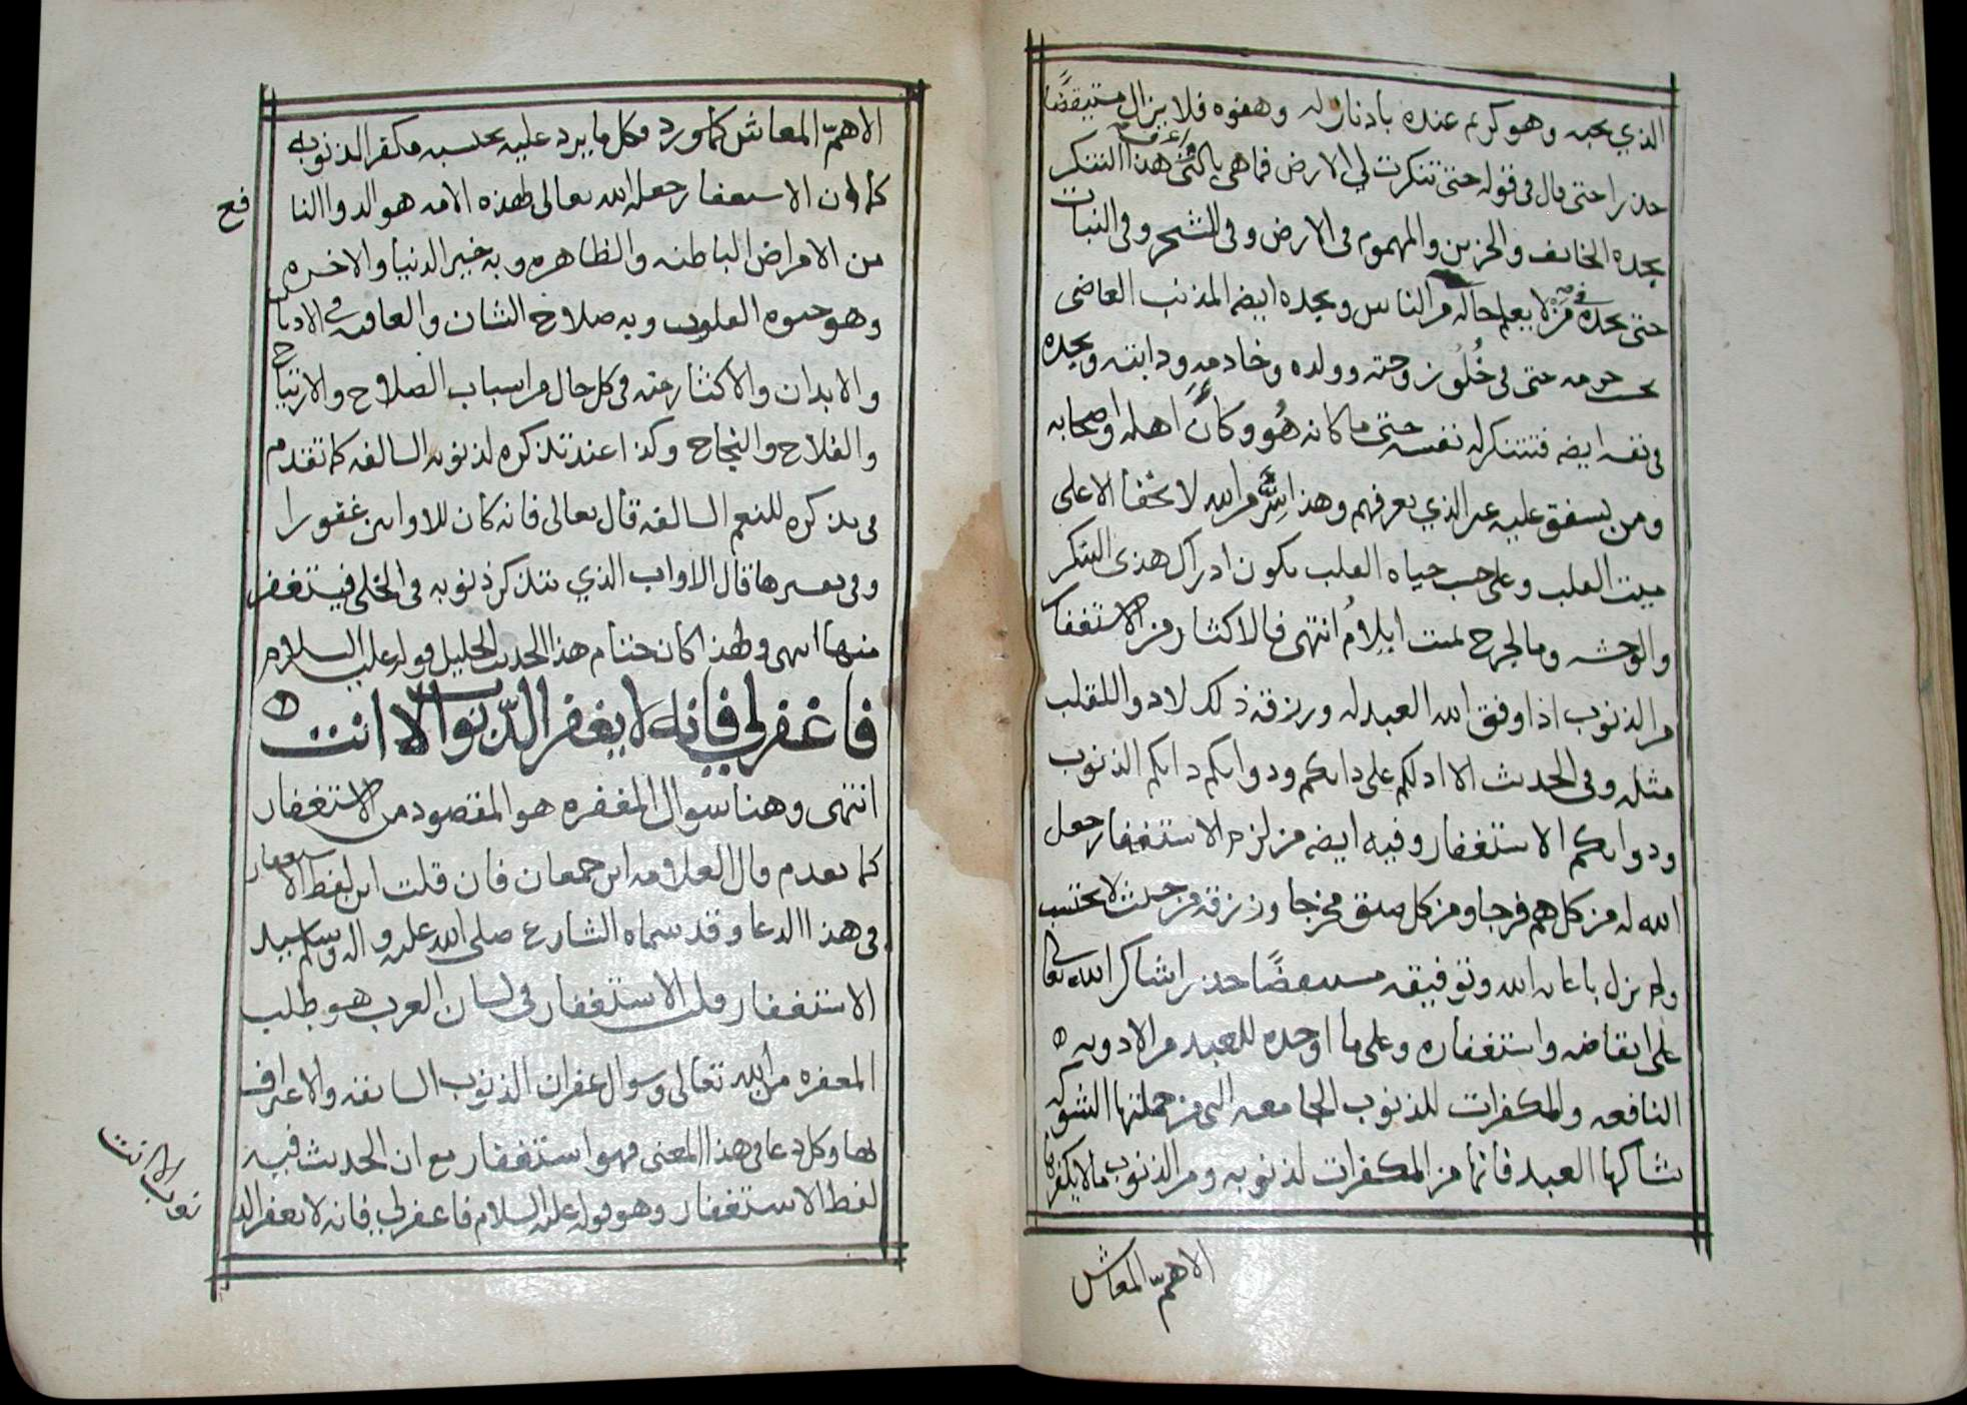 الذي يحبه وهو كريم عنده بادنا زله وهفوه فلا يزال مستيقضا
حذرا حتى قال في قوله حتى تنكرت لي الارض فما هي بالتي اعرف هذا التنكر
يجده الخائف والحزين والمهموم في الارض وفي الشجر وفي النبات
حتى يجده في من لا يعلم حاله من الناس ويجده ايضه المذنب العاصي
بحسب جرمه حتى في خلق زوجته وولده وخادمه ودابته ويجده
في نفسه ايضه فتتنكر له نفسه حتى ما كانه هو وكان اهله واصحابه
ومن يشفق عليه غير الذي يعرفهم وهذا سر من الله لا يخفا الا على
ميت القلب وعلى حسب حياة القلب يكون ادراك هذى التنكر
والوحشه وما لجرح بميت ايلام انتهى فالاكثار من الاستغفار
من الذنوب اذا وفق الله العبد له ورزقه ذلك لا دوا للقلب
مثله وفي الحديث الا ادلكم على دائكم ودوائكم دائكم الذنوب
ودوائكم الاستغفار وفيه ايضه من لزم الاستغفار جعل
الله له من كل هم فرجا ومن كل ضيق مخرجا ورزقه من حيث لا يحتسب
ولم يزل باعانه الله وتوفيقه مستيقضا حذرا شاكرا لله تعالى
على ايقاضه واستغفاره وعلى ما اوجده للعبد من الادويه
النافعه والمكفرات للذنوب الجامعه التي من جملتها الشوكه
يشاكها العبد فانها من المكفرات لذنوبه ومن الذنوب ما لا يكفره
الا هم المعاش
الا هم المعاش كما ورد وكل ما يرد عليه يحتسبه مكفر الذنوبه
كما ان الاستغفار جعله الله تعالى لهذه الامه هو الدوا النا
فع
من الامراض الباطنه والظاهره وبه خير الدنيا والاخره
وهو حيوه القلوب وبه صلاح الشان والعافيه في الاديان
والابدان والاكثار منه في كل حال من اسباب الصلاح والارتياح
والفلاح والنجاح وكذا عند تذكره لذنوبه السالفه كما تقدم
في تذكره للنعم السالفه قال تعالى فانه كان للاوابين غفورا
وفي تفسيرها قال الاواب الذي يتذكر ذنوبه في الخلى فيستغفر
منها انتهى ولهذا كان ختام هذا الحديث الجليل قوله عليه السلام
فاغفر لي فانه لا يغفر الذنوب الا انت
انتهى وهنا سوال المغفره هو المقصود من الاستغفار
كما تقدم قال العلامه ابن جمعان فان قلت اين لفظ الاستغفار
في هذا الدعا وقد سماه الشارع صلى الله عليه واله وسلم سيد
الاستغفار قلت الاستغفار في لسان العرب هو طلب
المغفره من الله تعالى وسوال غفران الذنوب السابقه والاعتراف
بها وكل دعا في هذا المعنى فهو استغفار مع ان الحديث فيه
لفظ الاستغفار وهو قوله عليه السلام فاغفر لي فانه لا يغفر الذ
نوب الا انت